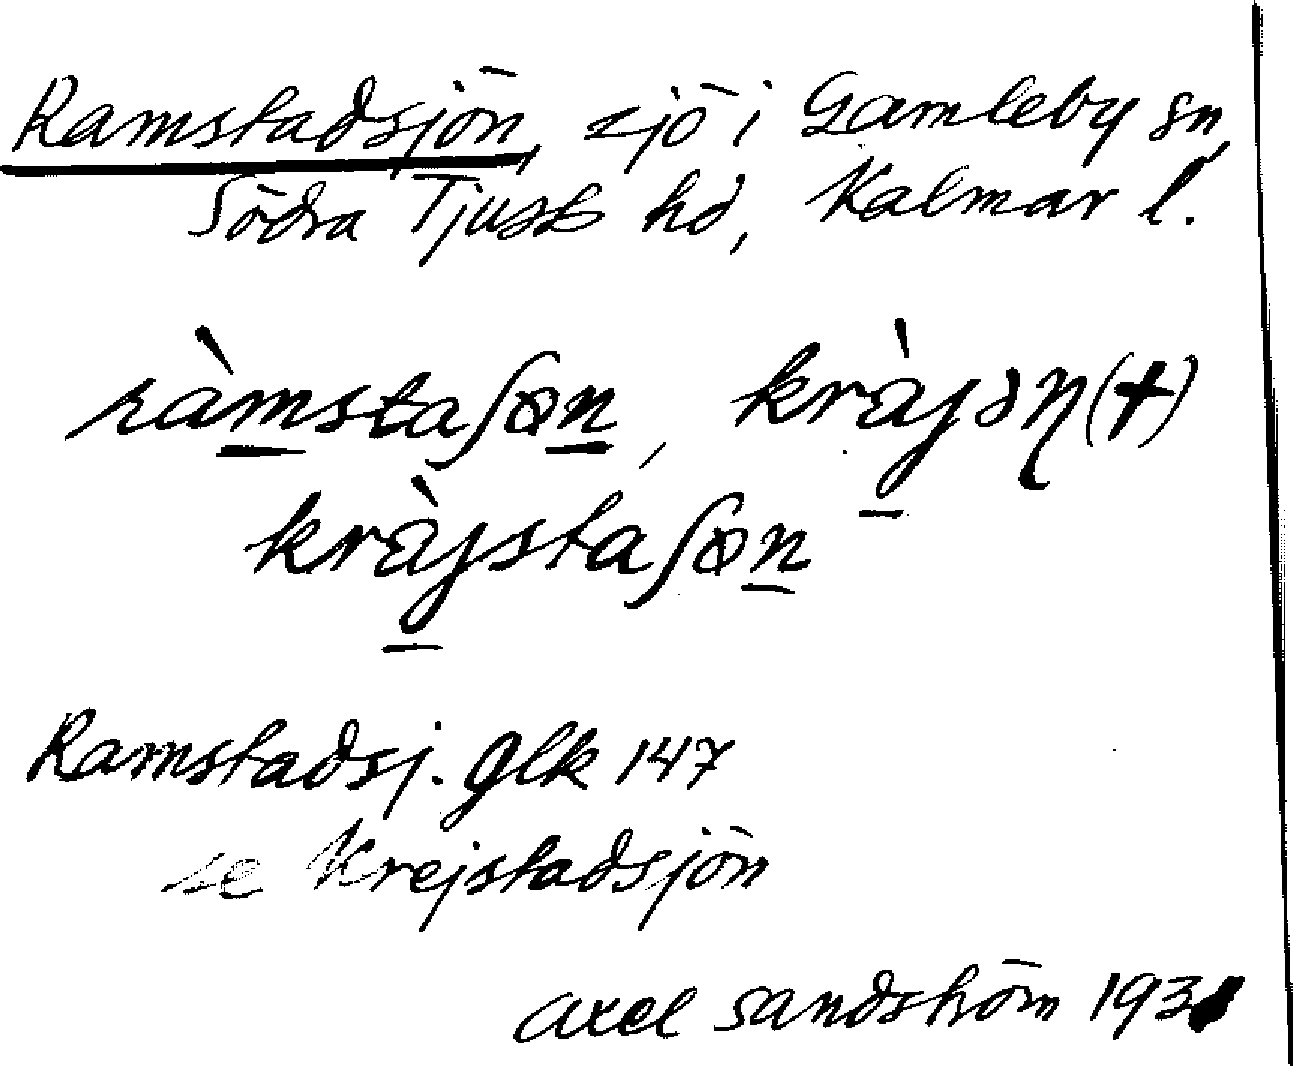 Ramstadsjön, sjö i Gamleby sn,
Södra Tjust hd, Kalmar l.
ràmstaʃɷn, kràjən(†)
kràjstaʃɷn
Ramstadsj. glk 147
se Krejstadsjön
Axel Sandström 1931